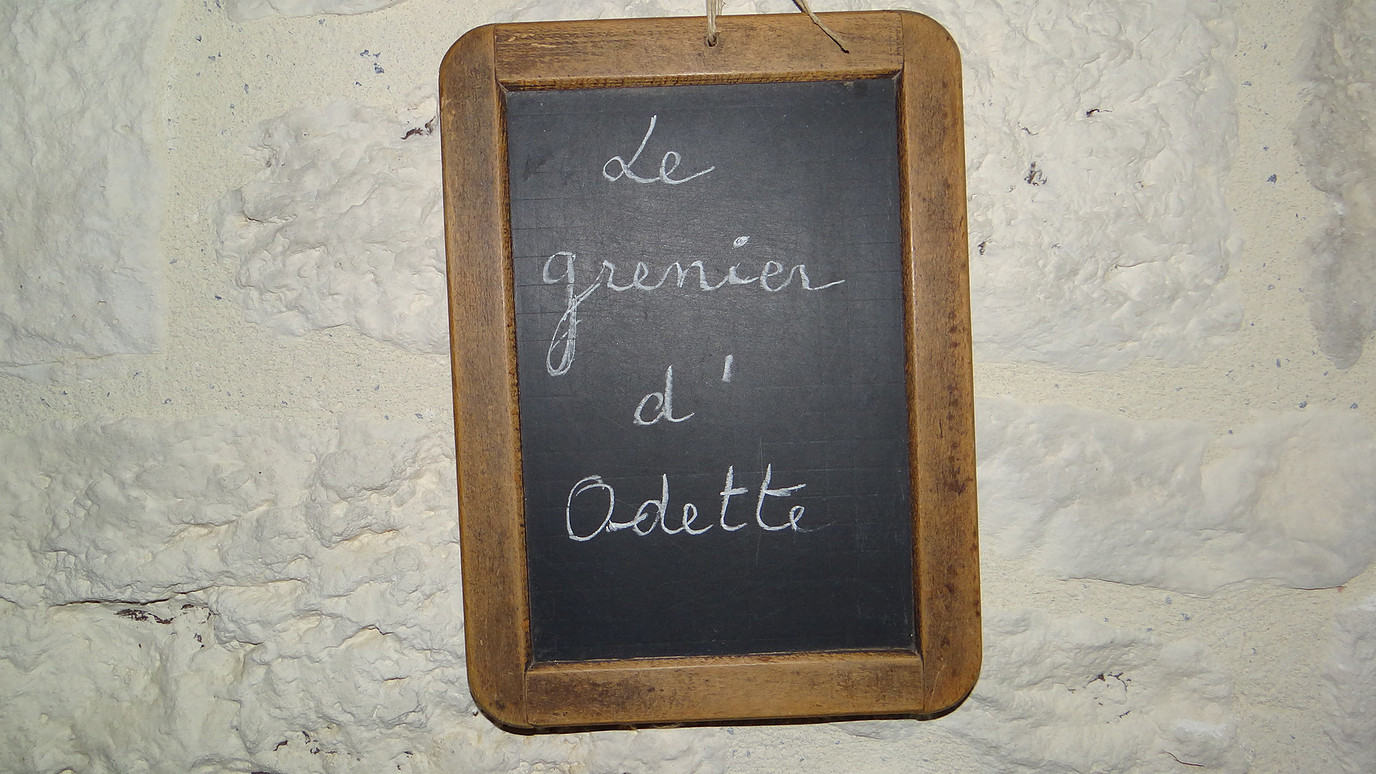 Le
grenier
d'
Odette